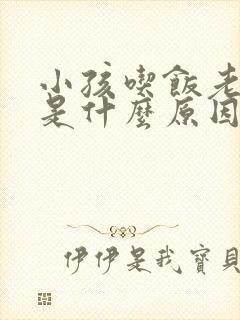 小孩喫飯老
是什麼原因
伊伊是我寶貝